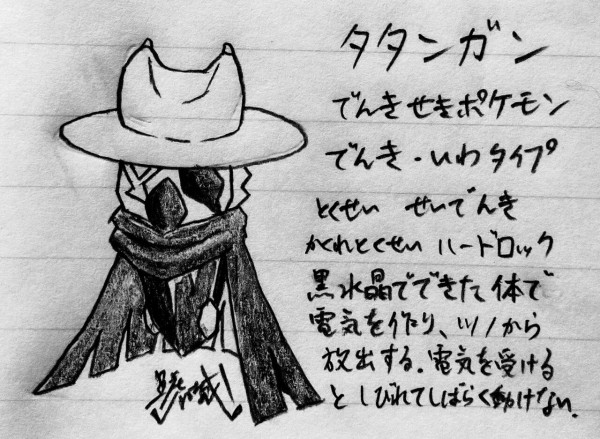 タタンガン
でんきせきポケモン
でんき・いわタイプ
とくせい せいでんき
かくれとくせい ハードロック
黒水晶でできた体で
電気を作り、ツノから
放出する。電気を受ける
としびれてしばらく動けない。